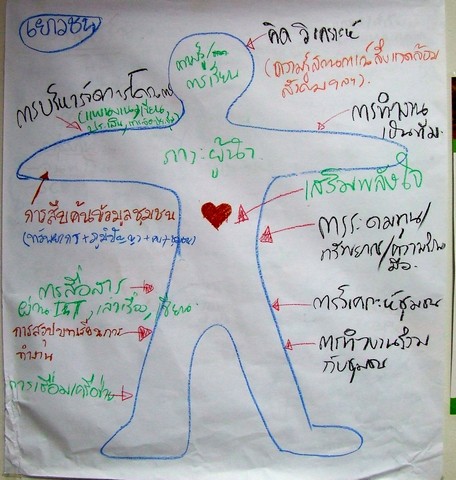 เยาวชน
คิด วิเคราะห์
ความรู้
การเรียน
(ความรู้สถานการณ์สิ่งแวดล้อม
สังคม ฯลฯ)
การบริหารจัดการโครงการ
(แผนงาน, เขียน,
ประเมิน,
การทำงาน
เป็นทีม
ภาวะผู้นำ
เสริมพลังใจ
การสืบค้นข้อมูลชุมชน
(ทรัพยากร + ภูมิปัญญา +
การระดมทุน/
ทรัพยากร/ความร่วม
มือ
การสื่อสาร
ผ่าน INT, เล่าเรื่อง, เขียน
การวิเคราะห์ชุมชน
การสรุปบทเรียนการ
ทำงาน
การทำงานร่วม
กับชุมชน
การเชื่อมเครือข่าย